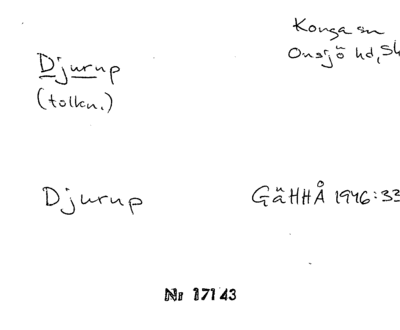 Konga sn
Djurup
Onsjö hd, Sk
(tolkn.)
Djurup
GäHHÅ 1946:33
Nr 17143